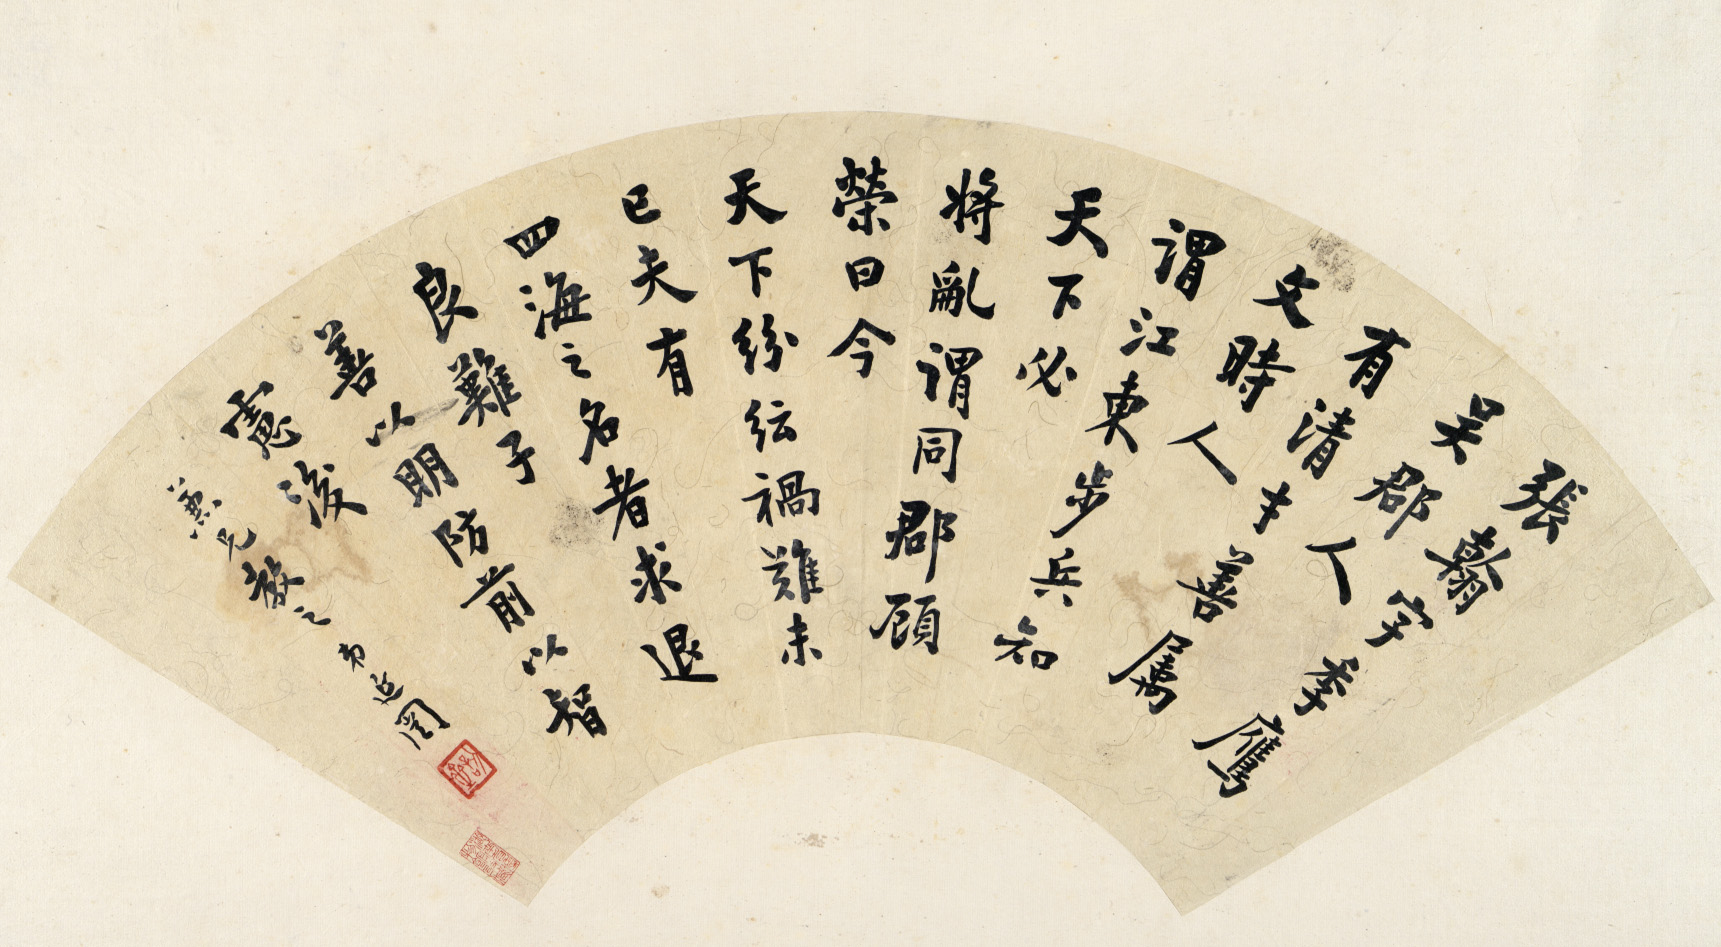 張翰字季鷹
吳郡人
有清才善屬
文時人
謂江東步兵知
天下必
將亂謂同郡顧
榮曰今
天下紛紜禍難未
已夫有
四海之名者求退
良難子
善以明防前以智
慮後
兄教之 弟延闓